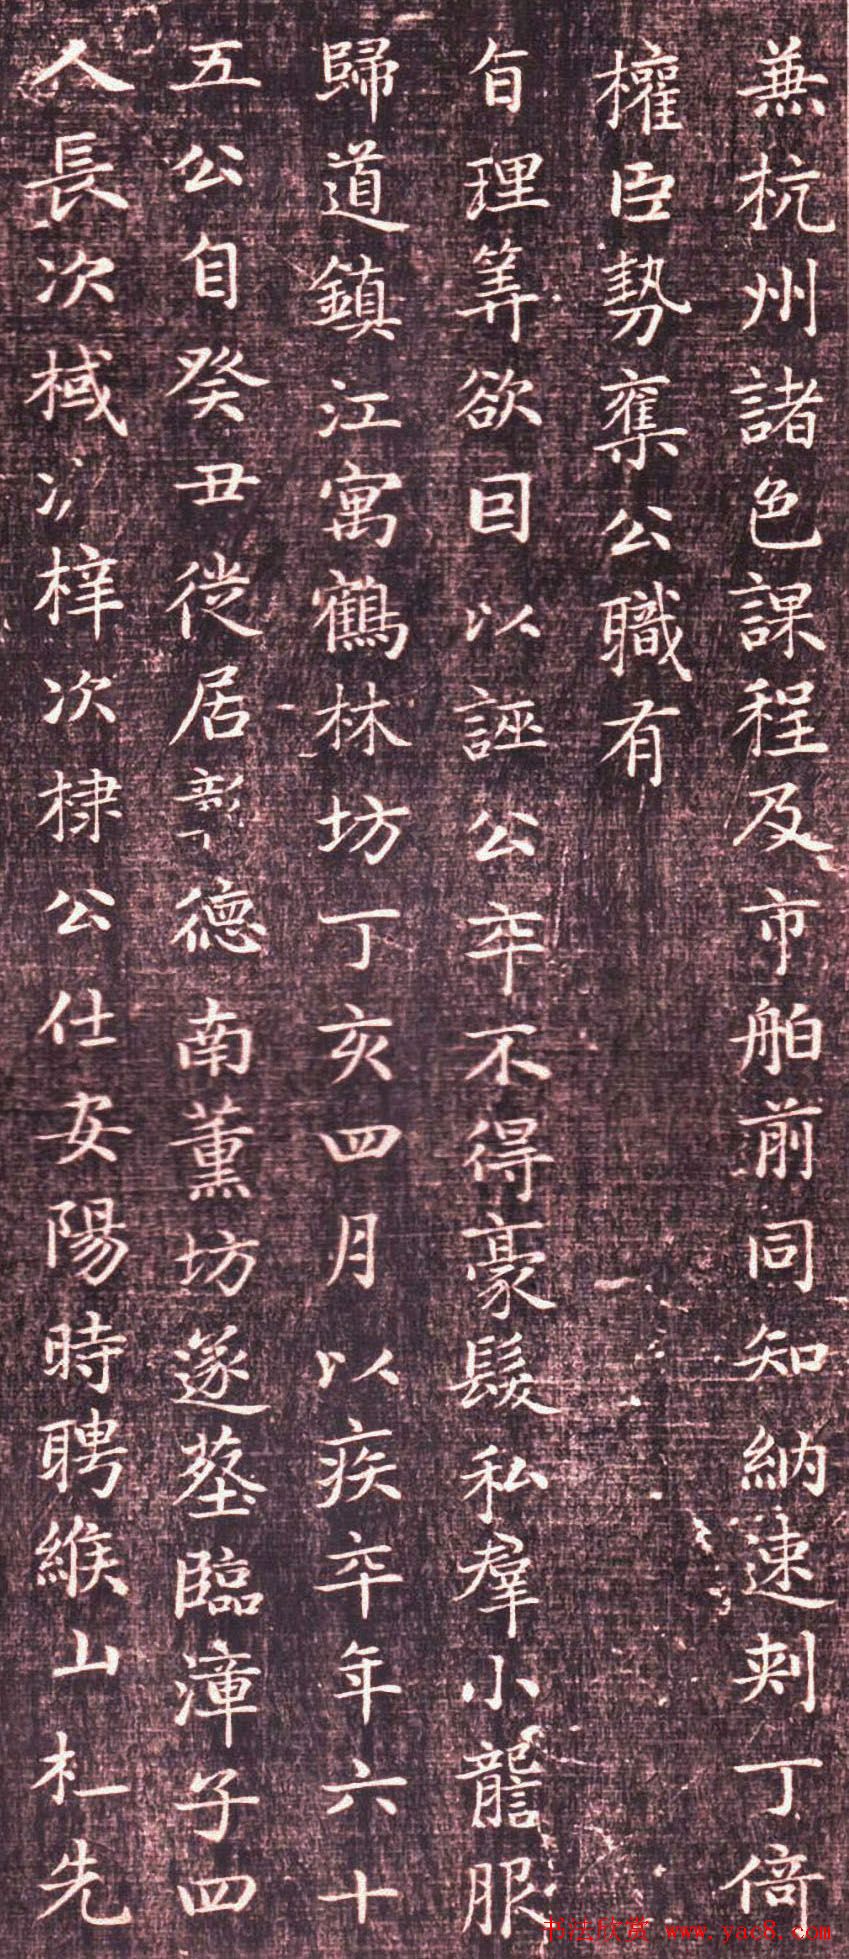 兼杭州諸色課程及市舶前同知納速剌丁倚
權臣勢奪公職有
旨理筭欲因以誣公卒不得豪髮私羣小讋服
歸道鎮江寓鶴林坊丁亥四月以疾卒年六十
五公自癸丑徙居彰德南薰坊遂葬臨漳子四
人長次棫次梓次棣公仕安陽時聘緱山杜先
书法欣赏 www.yac8.com